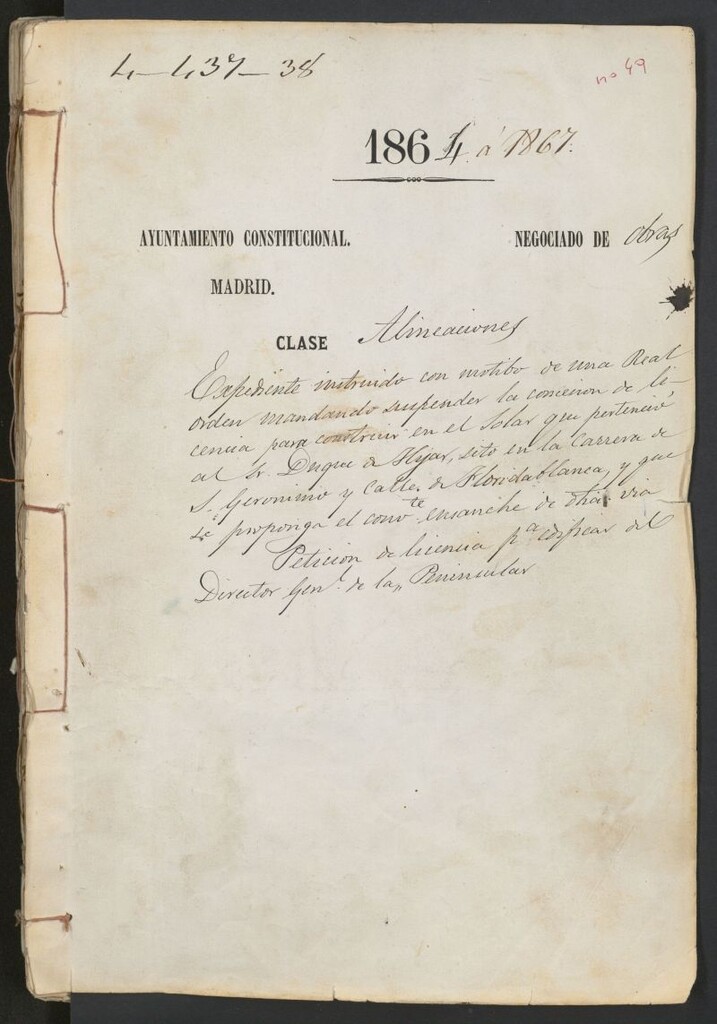 4-437-38
nº 49
1864 á 1867.
AYUNTAMIENTO CONSTITUCIONAL.
NEGOCIADO DE obras
MADRID.
CLASE Alineaciones
Expediente instruido con motibo de una Real
orden mandando suspender la concesion de li-
cencia para construir en el Solar que perteneció
al Sr. Duque de Hijar, sito en la Carrera de
S. Geronimo y Calle de Floridablanca, y que
se proponga el convte. ensanche de dha. via
Peticion de licencia pª edificar del
Director Genl. de la "Peninsular